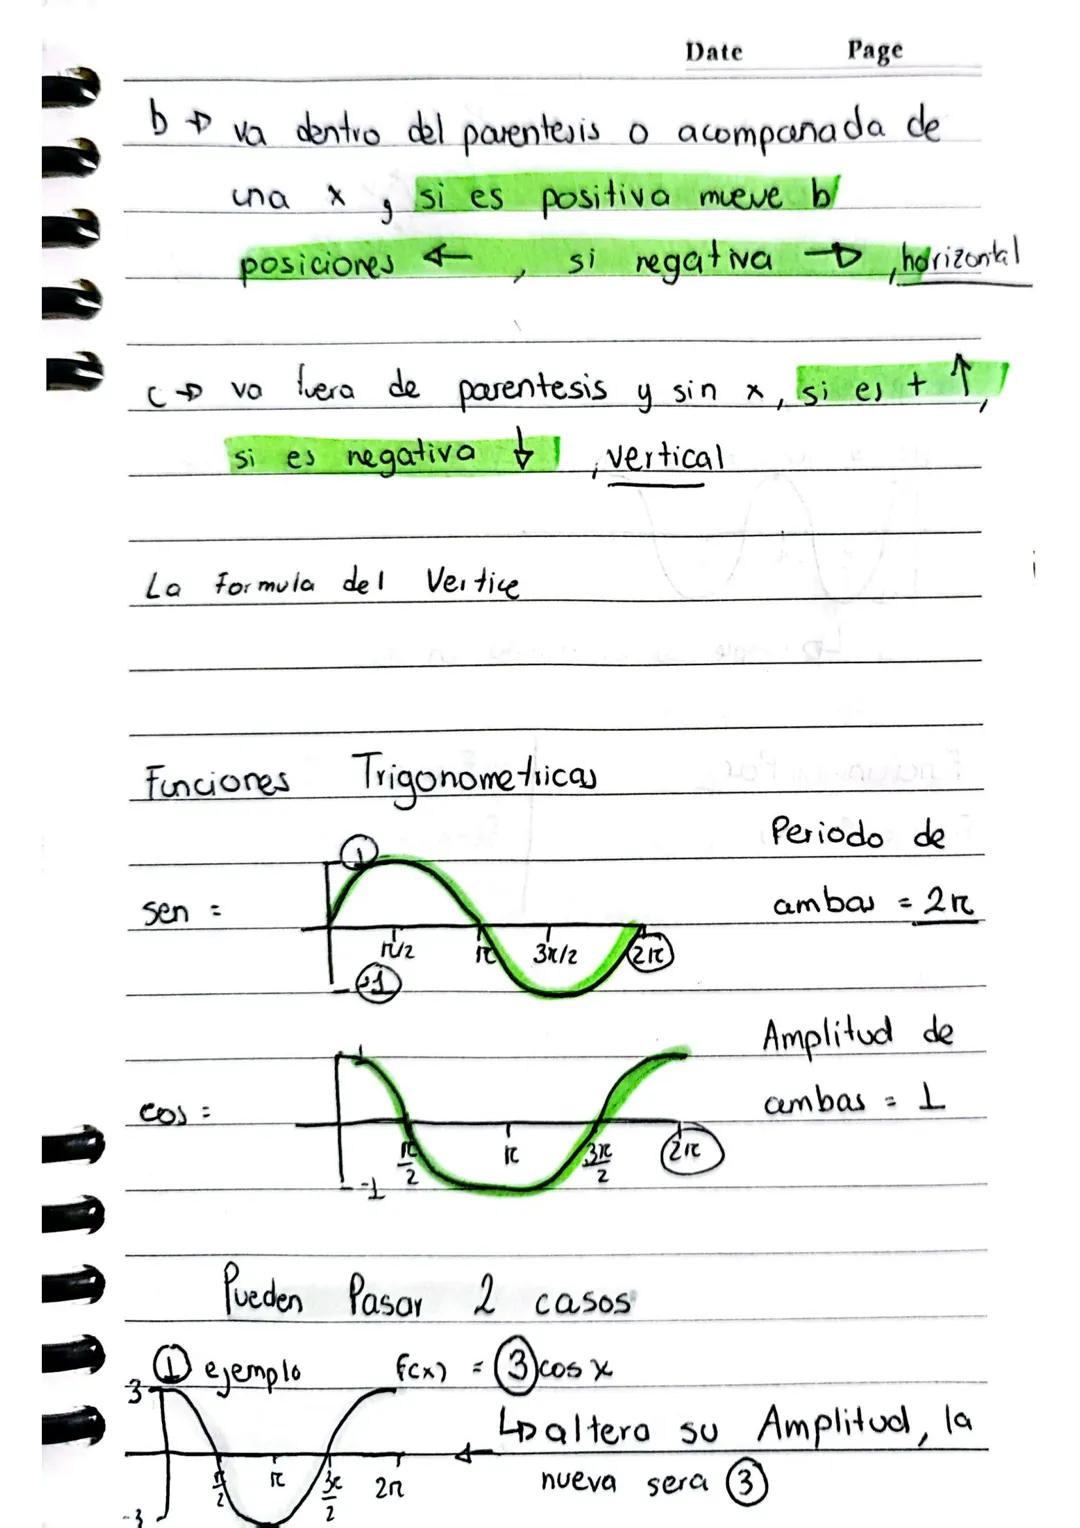 Date Page
b → va dentro del parentesis o acompanada de
una x, si es positiva mueve b
posiciones ← , si negativa → , horizontal
c → va fuera de parentesis y sin x, si es + ↑,
si es negativa ↓ , vertical
La Formula del Vertice
Funciones Trigonometricas
Periodo de
ambas = 2π
sen =
1
π/2 π 3π/2 2π
-1
Amplitud de
ambas = 1
cos =
1
π/2 π 3π/2 2π
-1
Pueden Pasar 2 casos
① ejemplo f(x) = 3 cos x
3
↳ altera su Amplitud, la
nueva sera 3
π/2 π 3π/2 2π
-3